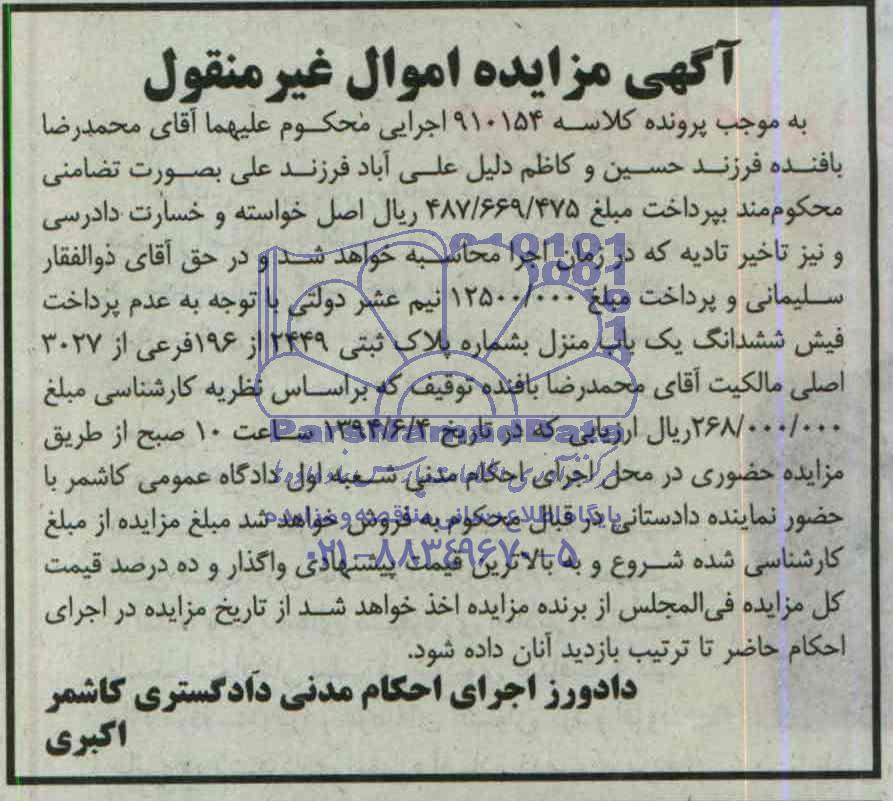 آگهی مزایده اموال غیر منقول
به موجب پرونده کلاسه ۹۱۰۱۵۴ اجرایی محکوم علیهما آقای محمدرضا
بافنده فرزند حسین و کاظم دلیل علی آباد فرزند علی بصورت تضامنی
محکوم‌مند بپرداخت مبلغ ۴۸۷/۶۶۹/۴۷۵ ریال اصل خواسته و خسارت دادرسی
و نیز تاخیر تادیه که در زمان اجرا محاسبه خواهد شد و در حق آقای ذوالفقار
سلیمانی و پرداخت مبلغ ۱۲۵۰۰/۰۰۰ نیم عشر دولتی با توجه به عدم پرداخت
فیش ششدانگ یک باب منزل بشماره پلاک ثبتی ۲۴۴۹ از ۱۹۶فرعی از ۳۰۲۷
اصلی مالکیت آقای محمدرضا بافنده توقیف که براساس نظریه کارشناسی مبلغ
۲۶۸/۰۰۰/۰۰۰ریال ارزیابی که در تاریخ ۱۳۹۴/۶/۴ ساعت ۱۰ صبح از طریق
مزایده حضوری در محل اجرای احکام مدنی شعبه اول دادگاه عمومی کاشمر با
حضور نماینده دادستانی در قبال محکوم به فروش خواهد شد مبلغ مزایده از مبلغ
کارشناسی شده شروع و به بالاترین قیمت پیشنهادی واگذار و ده درصد قیمت
کل مزایده فی‌المجلس از برنده مزایده اخذ خواهد شد از تاریخ مزایده در اجرای
احکام حاضر تا ترتیب بازدید آنان داده شود.
دادورز اجرای احکام مدنی دادگستری کاشمر
اکبری
ParsNamadData
پایگاه اطلاع رسانی مناقصه و مزایده
۰۲۱-۸۸۳۴۹۶۷۰-۵